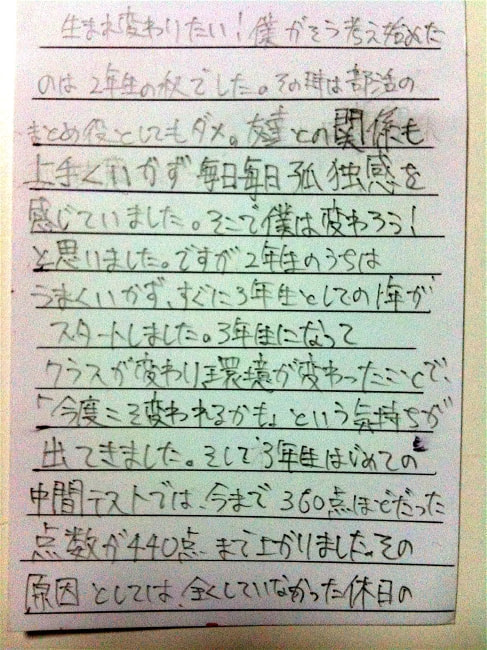 生まれ変わりたい!僕がそう考え始めた
のは2年生の秋でした。その時は部活の
まとめ役としてもダメ。友達との関係も
上手く行かず毎日毎日孤独感を
感じていました。そこで僕は変わろう!
と思いました。ですが2年生のうちは
うまくいかず、すぐに3年生としての1年が
スタートしました。3年生になって
クラスが変わり環境が変わったことで、
「今度こそ変われるかも」という気持ちが
出てきました。そして3年生はじめての
中間テストでは、今まで360点ほどだった
点数が440点まで上がりました。その
原因としては、全くしていなかった休日の